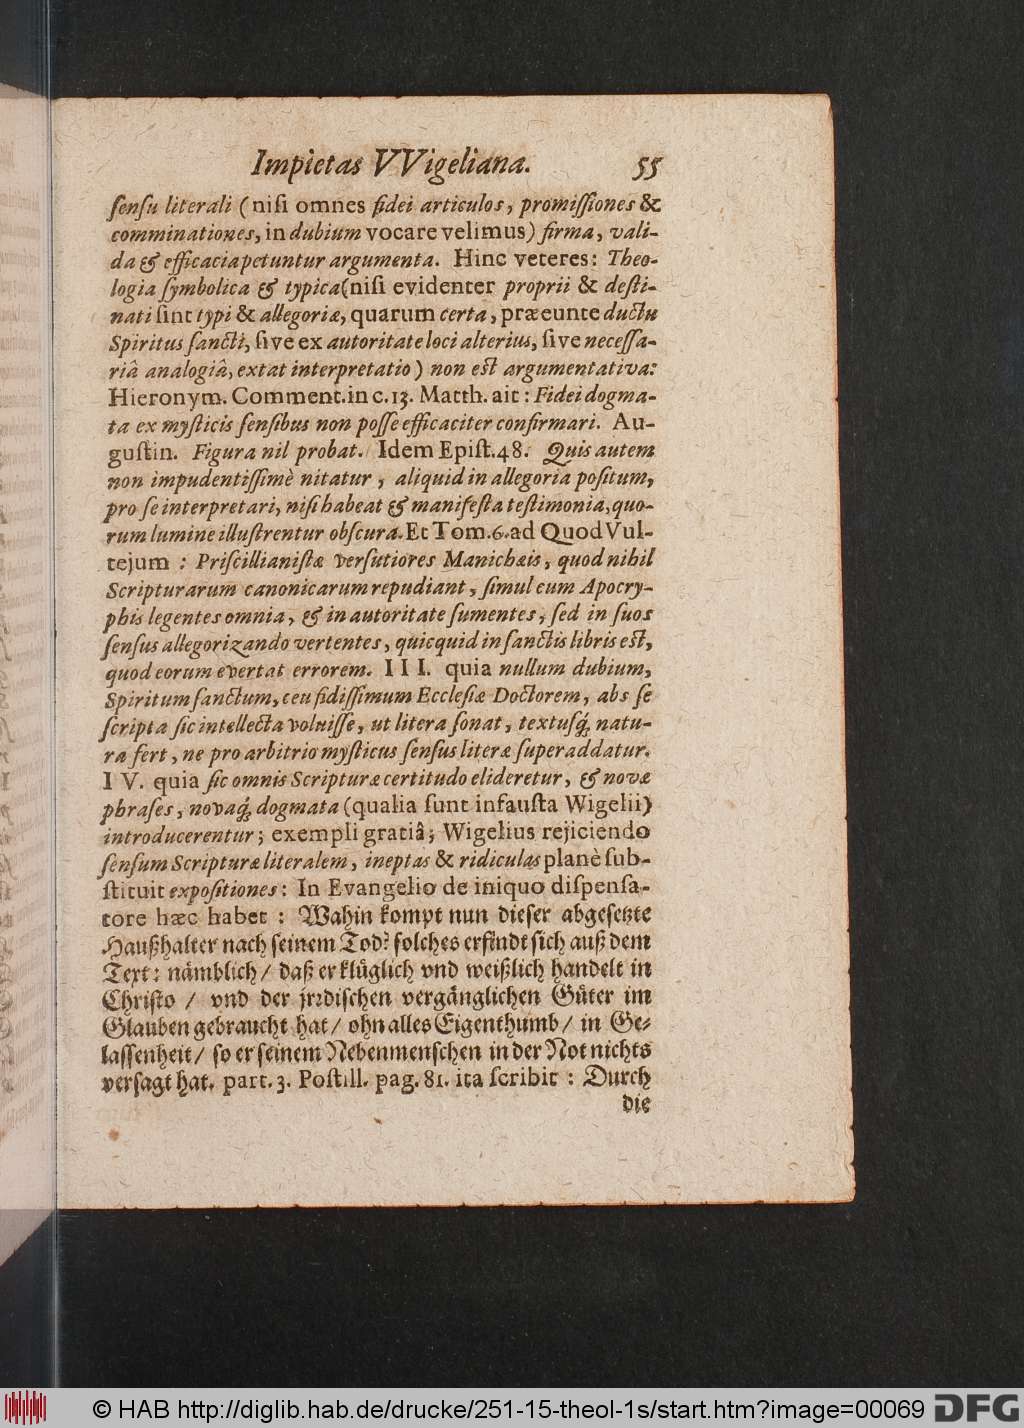 Impietas VVigeliana. 55
ſenſu literali (niſi omnes fidei articulos, promiſſiones &
comminationes, in dubium vocare velimus) firma, vali-
da & efficacia petuntur argumenta. Hinc veteres: Theo-
logia ſymbolica & typica (niſi evidenter proprii & deſti-
nati ſint typi & allegoriæ, quarum certa, præeunte ductu
Spiritus ſancti, ſive ex autoritate loci alterius, ſive neceſſa-
riâ analogiâ, extat interpretatio) non eſt argumentativa:
Hieronym. Comment. in c. 13. Matth. ait: Fidei dogma-
ta ex myſticis ſenſibus non poſſe efficaciter confirmari. Au-
guſtin. Figura nil probat. Idem Epiſt. 48. Quis autem
non impudentiſſimè nitatur, aliquid in allegoria poſitum,
pro ſe interpretari, niſi habeat & manifeſta teſtimonia, quo-
rum lumine illuſtrentur obſcura. Et Tom. 6. ad Quod Vul-
tejum: Priſcillianiſtæ verſutiores Manichæis, quod nihil
Scripturarum canonicarum repudiant, ſimul cum Apocry-
phis legentes omnia, & in autoritate ſumentes, ſed in ſuos
ſenſus allegorizando vertentes, quicquid in ſanctis libris eſt,
quod eorum evertat errorem. III. quia nullum dubium,
Spiritum ſanctum, ceu fidiſſimum Eccleſiæ Doctorem, abs ſe
ſcripta ſic intellecta voluiſſe, ut litera ſonat, textuſq́; natu-
ra fert, ne pro arbitrio myſticus ſenſus literæ ſuperaddatur.
IV. quia ſic omnis Scripturæ certitudo elideretur, & novæ
phraſes, novaq́; dogmata (qualia ſunt infauſta Wigelii)
introducerentur; exempli gratiâ; Wigelius rejiciendo
ſenſum Scripturæ literalem, ineptas & ridiculas planè ſub-
ſtituit expoſitiones: In Evangelio de iniquo diſpenſa-
tore hæc habet: Wahin kompt nun dieſer abgeſetzte
Haußhalter nach ſeinem Tod? ſolches erfindt ſich auß dem
Text: nämblich/ daß er klüglich vnd weißlich handelt in
Chriſto / vnd der jrrdiſchen vergänglichen Güter im
Glauben gebraucht hat/ ohn alles Eigenthumb/ in Ge-
laſſenheit/ ſo er ſeinem Nebenmenſchen in der Not nichts
verſagt hat. part. 3. Poſtill. pag. 81. ita ſcribit: Durch
die
© HAB http://diglib.hab.de/drucke/251-15-theol-1s/start.htm?image=00069 DFG